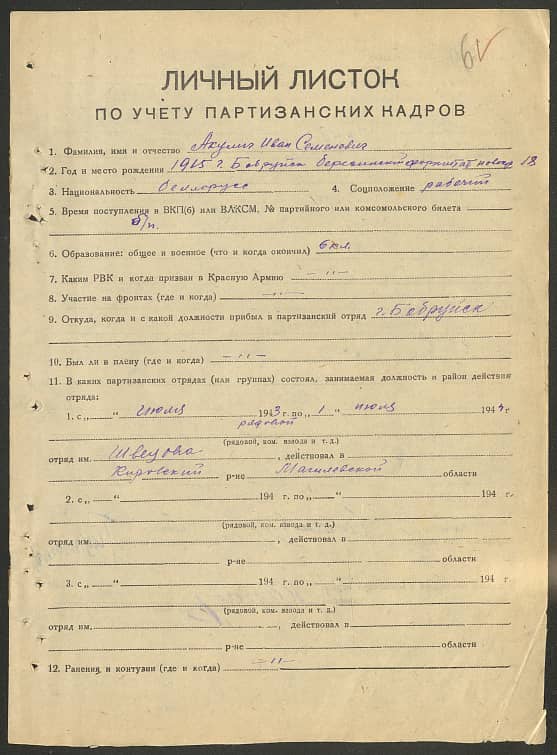 6
ЛИЧНЫЙ ЛИСТОК
ПО УЧЕТУ ПАРТИЗАНСКИХ КАДРОВ
1. Фамилия, имя и отчество Акулич Иван Семенович
2. Год и место рождения 1915 г. г. Бобруйск форштат 18
3. Национальность белорусс 4. Соцположение рабочий
5. Время поступления в ВКП(б) или ВЛКСМ, № партийного или комсомольского билета
б/п.
6. Образование: общее и военное (что и когда окончил) 6 кл.
7. Каким РВК и когда призван в Красную Армию — " —
8. Участие на фронтах (где и когда) — " —
9. Откуда, когда и с какой должности прибыл в партизанский отряд г. Бобруйск
10. Был ли в плену (где и когда) — " —
11. В каких партизанских отрядах (или группах) состоял, занимаемая должность и район действия
отряда:
1. с „ “ июля 1943 г. по „ 1 “ июля 1944 г
рядовой
(рядовой, ком. взвода и т. д.)
отряд им. Швецова, действовал в
Кировский р-не Магилевской области
2. с „ “ 194 г. по „ “ 194 г.
(рядовой, ком. взвода и т. д.)
отряд им. , действовал в
р-не области
3. с „ “ 194 г. по „ “ 194 г.
(рядовой, ком. взвода и т. д.)
отряд им. , действовал в
р-не области
12. Ранения и контузии (где и когда) — " —